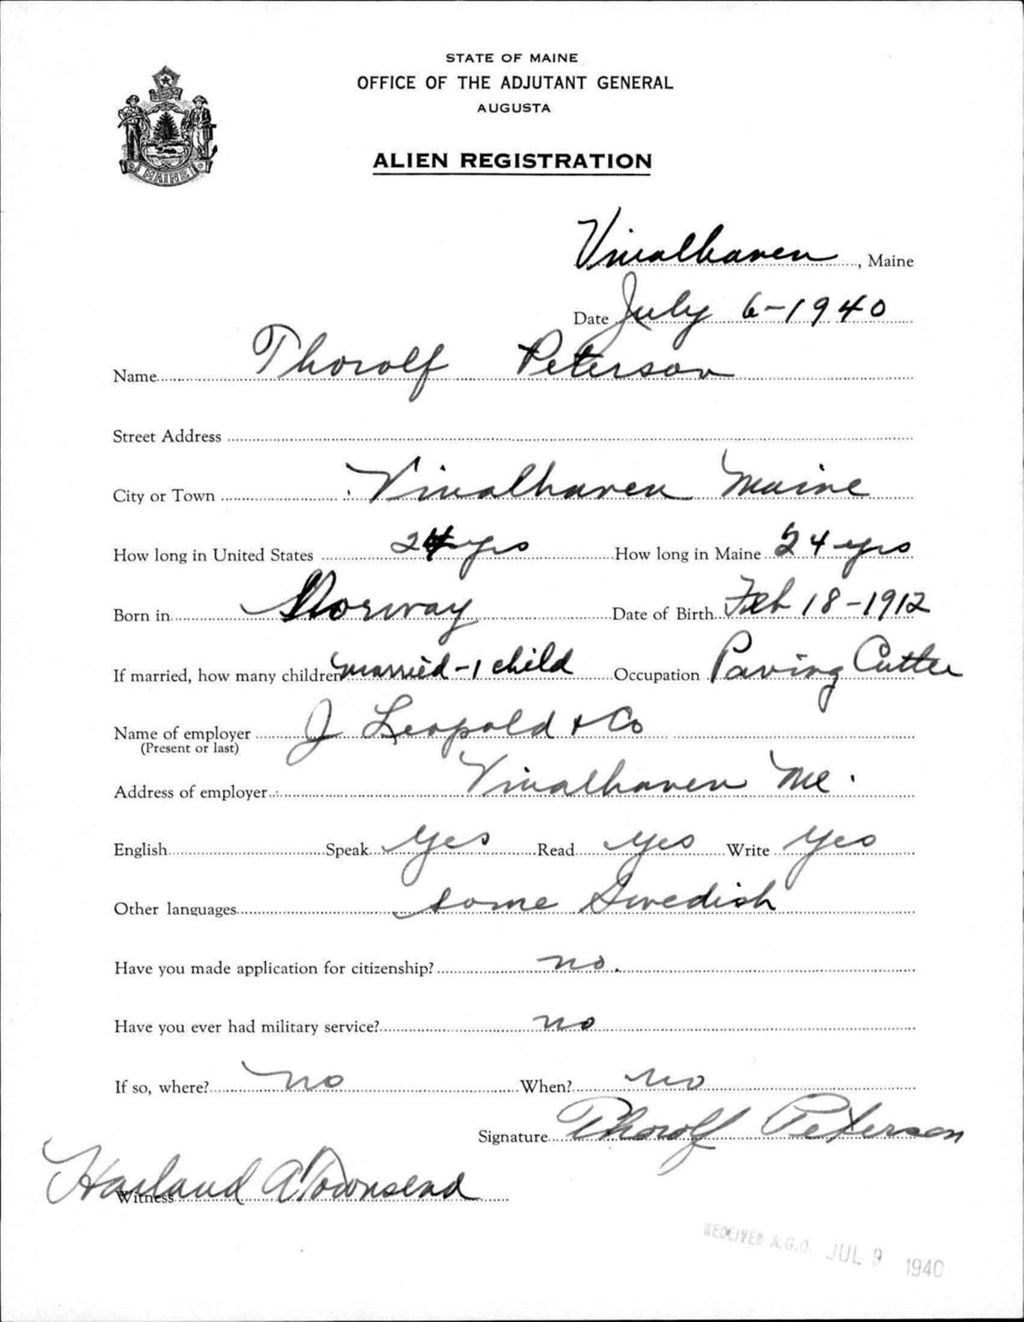 STATE OF MAINE
OFFICE OF THE ADJUTANT GENERAL
AUGUSTA
ALIEN REGISTRATION
MAINE
Vinalhaven, Maine
Date July 6-1940
Name Thorolf Peterson
Street Address
City or Town Vinalhaven Maine
How long in United States 24 yrs How long in Maine 24 yrs
Born in Norway Date of Birth Feb 18-1912
If married, how many children married - 1 child Occupation Paving Cutter
Name of employer J Leopold & Co
(Present or last)
Address of employer Vinalhaven Me.
English Speak yes Read yes Write yes
Other languages some Swedish
Have you made application for citizenship? no.
Have you ever had military service? no
If so, where? no When? no
Signature Thorolf Peterson
Witness Harland A Townsend
RECEIVED A.G.O. JUL 9 1940